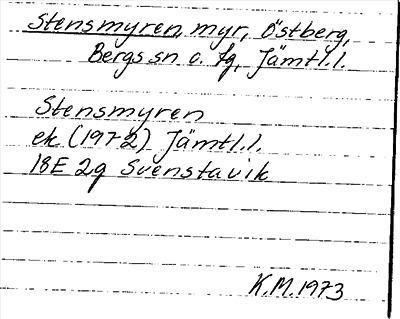 Stensmyren, myr, Östberg,
Bergs sn o. tg, Jämtl.l.
Stensmyren
ek (1972) Jämtl.l.
18E 2g Svenstavik
K.M. 1973